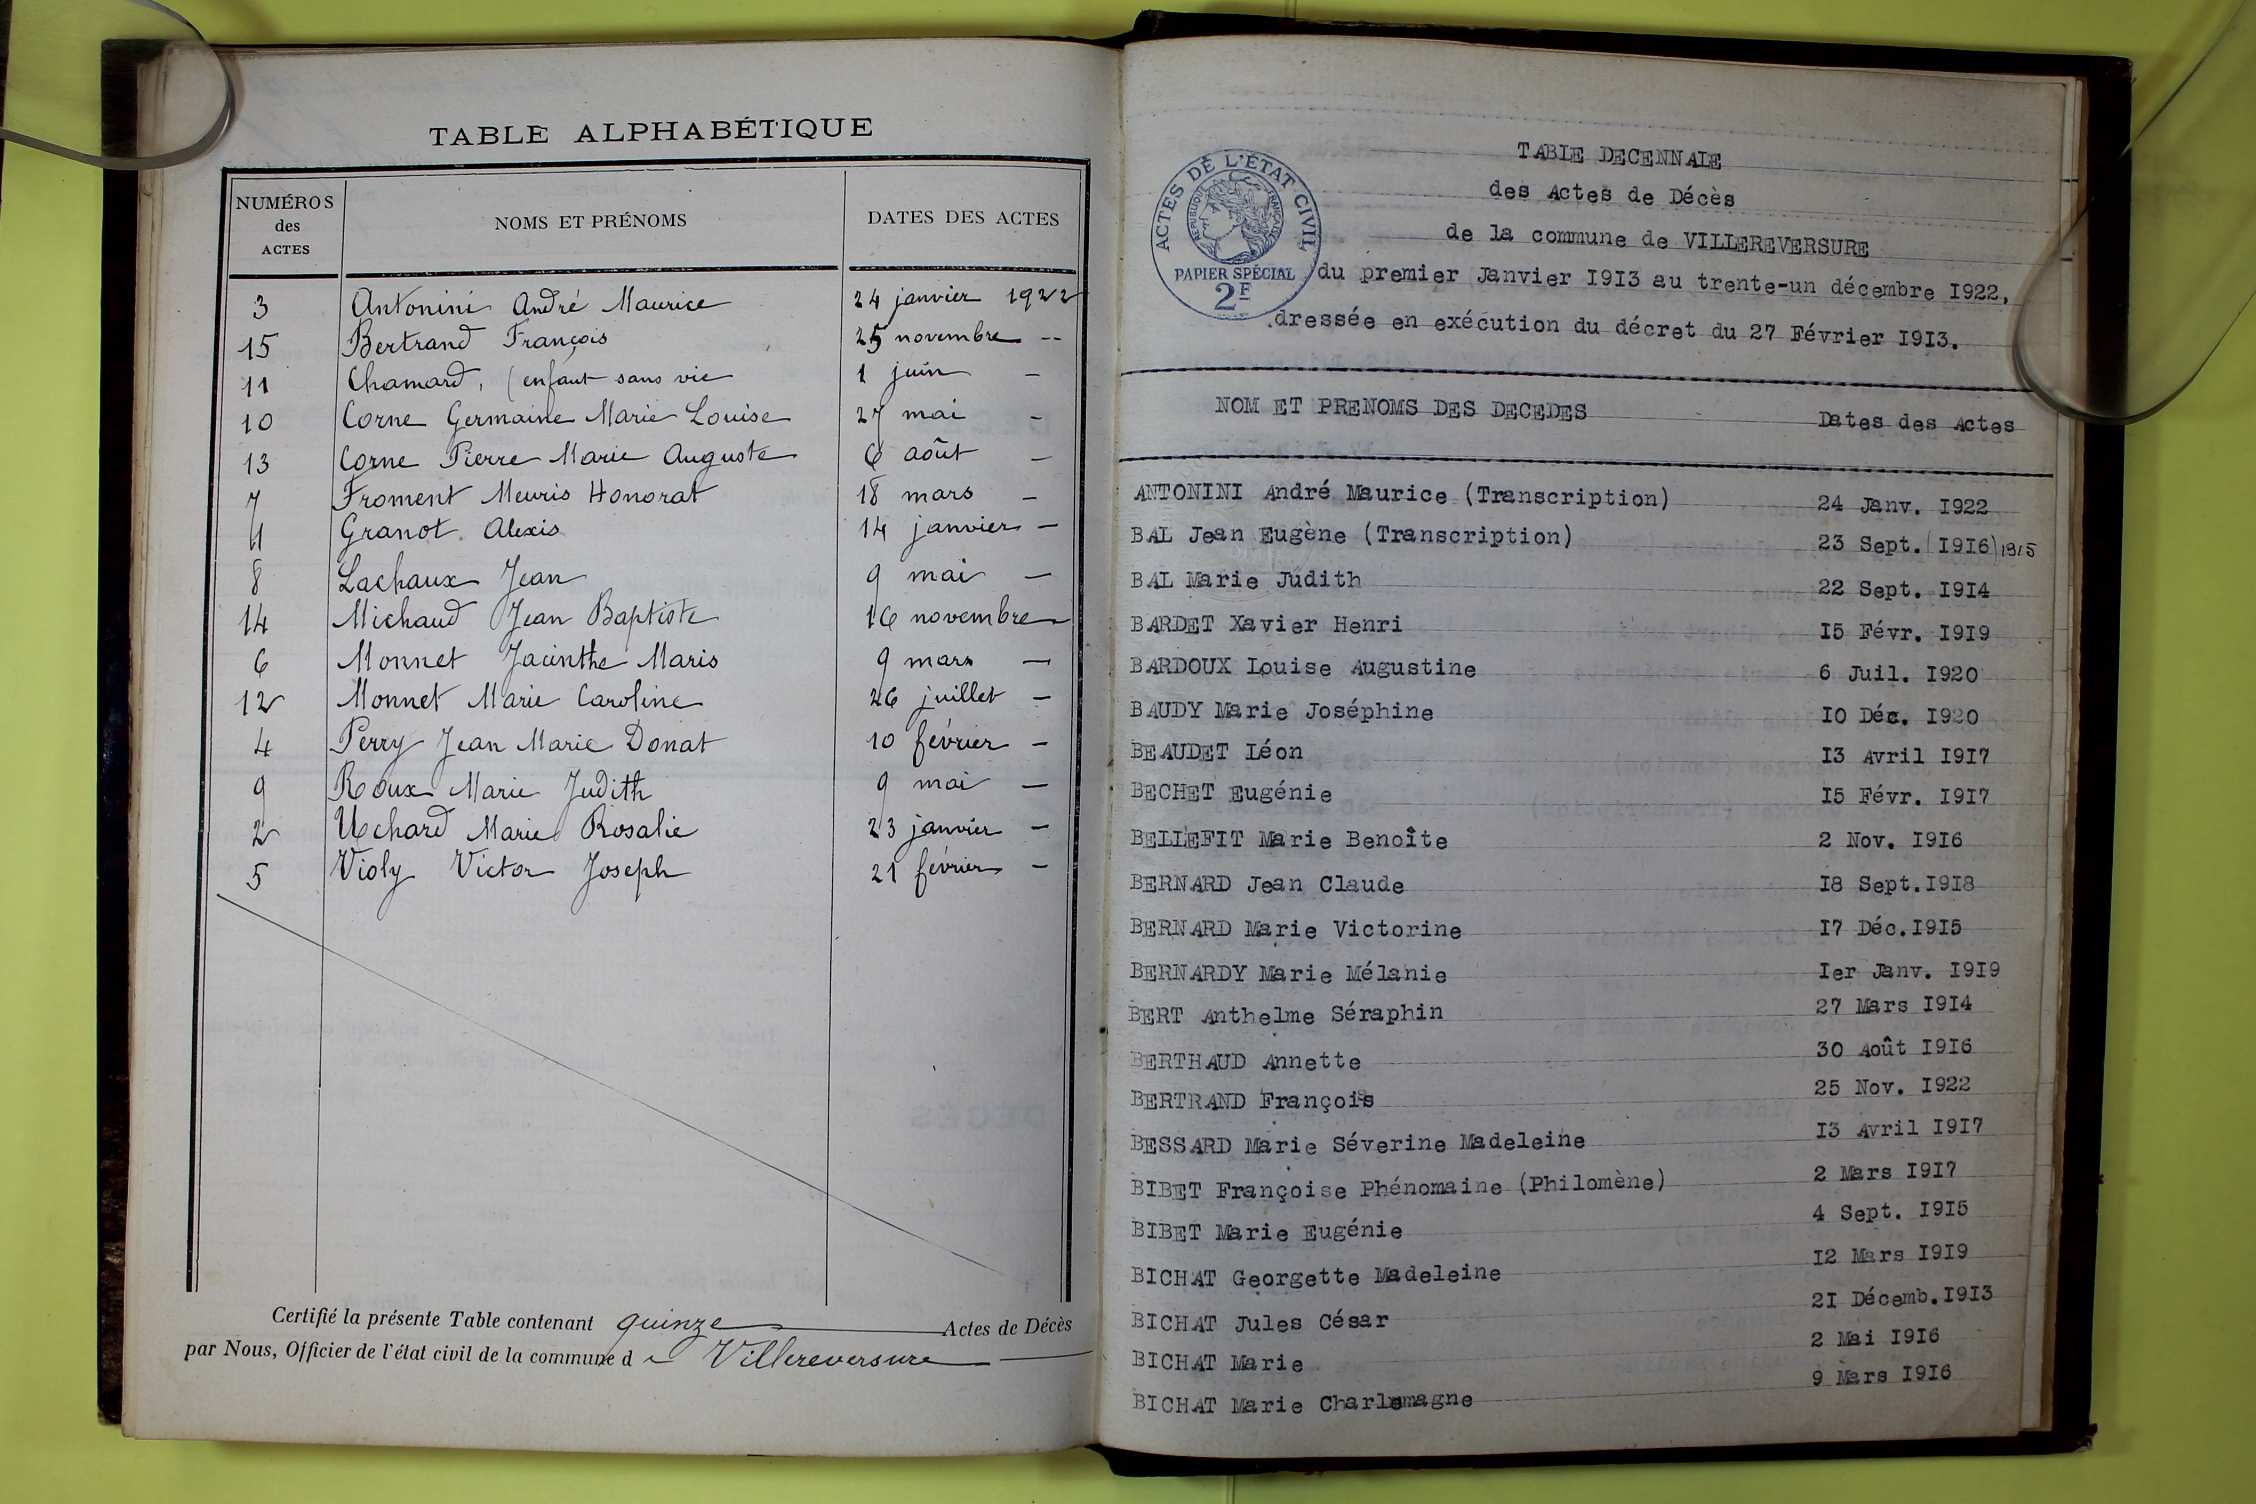 TABLE ALPHABÉTIQUE
NUMÉROS des ACTES NOMS ET PRÉNOMS DATES DES ACTES
3 Antonini André Maurice 24 janvier 1922
15 Bertrand François 25 novembre --
11 Chamard, (enfant sans vie 1 juin -
10 Corne Germaine Marie Louise 27 mai -
13 Corne Pierre Marie Auguste 6 août -
7 Froment Meuris Honorat 18 mars -
Granot Alexis 14 janvier -
8 Lachaux Jean 9 mai -
14 Michaud Jean Baptiste 16 novembre
6 Monnet Jacinthe Maris 9 mars -
12 Monnet Marie Caroline 26 juillet -
4 Perry Jean Marie Donat 10 février -
9 Roux Marie Judith 9 mai -
2 Uchard Marie Rosalie 23 janvier -
5 Violy Victor Joseph 21 février -
Certifié la présente Table contenant quinze Actes de Décès
par Nous, Officier de l'état civil de la commune d e Villereversure
ACTES DE L'ÉTAT CIVIL
RÉPUBLIQUE FRANÇAISE
PAPIER SPÉCIAL
2F
TABLE DECENNALE
des Actes de Décès
de la commune de VILLEREVERSURE
du premier Janvier I9I3 au trente-un décembre I922,
dressée en exécution du décret du 27 Février I9I3.
NOM ET PRENOMS DES DECEDES Dates des Actes
ANTONINI André Maurice (Transcription) 24 Janv. I922
BAL Jean Eugène (Transcription) 23 Sept. (I9I6) 1915
BAL Marie Judith 22 Sept. I9I4
BARDET Xavier Henri I5 Févr. I9I9
BARDOUX Louise Augustine 6 Juil. I920
BAUDY Marie Joséphine I0 Déc. I920
BEAUDET Léon I3 Avril I9I7
BECHET Eugénie I5 Févr. I9I7
BELLEFIT Marie Benoîte 2 Nov. I9I6
BERNARD Jean Claude I8 Sept.I9I8
BERNARD Marie Victorine I7 Déc.I9I5
BERNARDY Marie Mélanie Ier Janv. I9I9
BERT Anthelme Séraphin 27 Mars I9I4
BERTHAUD Annette 30 Août I9I6
BERTRAND François 25 Nov. I922
BESSARD Marie Séverine Madeleine I3 Avril I9I7
BIBET Françoise Phénomaine (Philomène) 2 Mars I9I7
BIBET Marie Eugénie 4 Sept. I9I5
BICHAT Georgette Madeleine I2 Mars I9I9
BICHAT Jules César 2I Décemb.I9I3
BICHAT Marie 2 Mai I9I6
BICHAT Marie Charlemagne 9 Mars I9I6